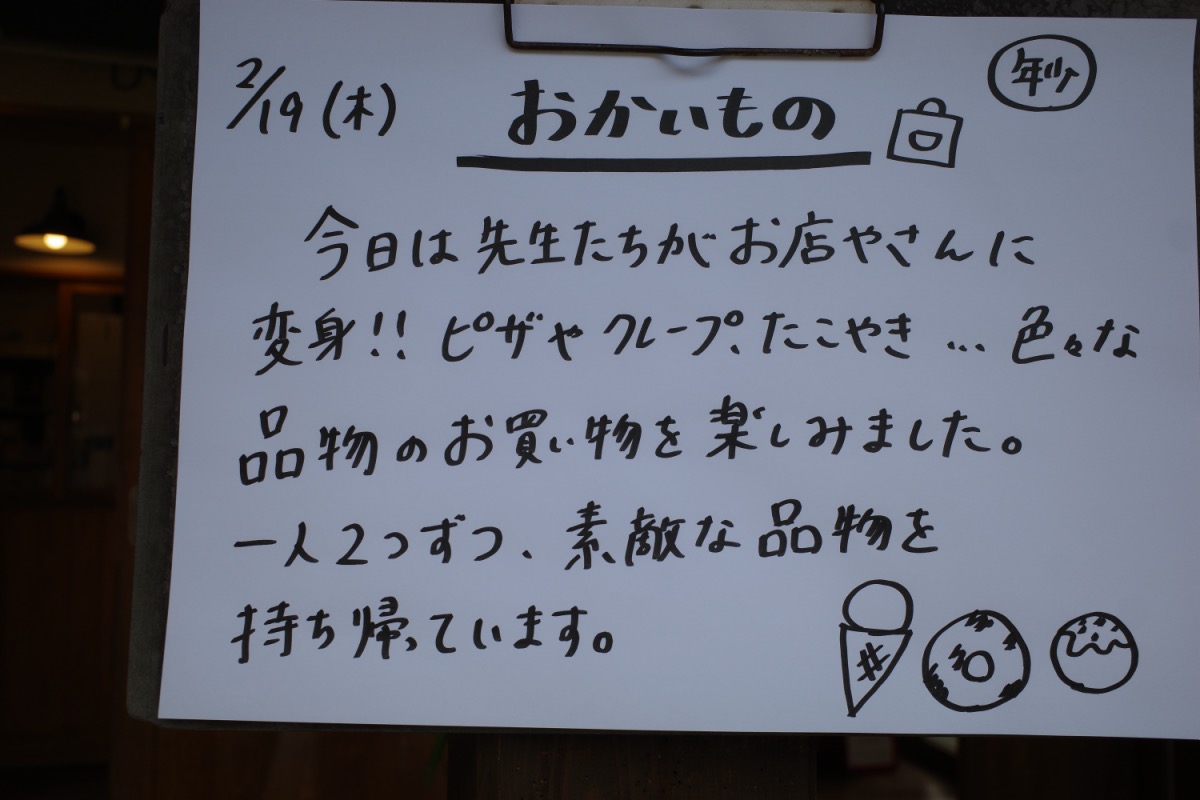 2/19(木) おかいもの 年少
今日は先生たちがお店やさんに
変身!! ピザやクレープ、たこやき … 色々な
品物のお買い物を楽しみました。
一人2つずつ、素敵な品物を
持ち帰っています。